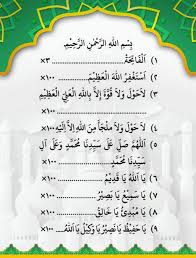 بِسْمِ اللهِ الرَّحْمٰنِ الرَّحِيْمِ
١) اَلْفَاتِحَةُ ............ ×٣
٢) اَسْتَغْفِرُ اللهَ الْعَظِيْمَ ............ ×١٠٠
٣) لَاحَوْلَ وَلَا قُوَّةَ اِلَّا بِاللهِ الْعَلِيِّ الْعَظِيْمِ
............ ×١٠٠
٤) لَاحَوْلَ وَلَا مَلْجَأَ مِنَ اللهِ اِلَّا اِلَيْهِ ×١٠٠
٥) اَللّٰهُمَّ صَلِّ عَلَى سَيِّدِنَا مُحَمَّدٍ وَعَلَى آلِ
سَيِّدِنَا مُحَمَّدٍ ............ ×١٠٠
٦) يَا اَللهُ يَا قَدِيْمُ ............ ×١٠٠
٧) يَا سَمِيْعُ يَا بَصِيْرُ ............ ×١٠٠
٨) يَا مُبْدِئُ يَا خَالِقُ ............ ×١٠٠
٩) يَا حَفِيْظُ يَا نَصِيْرُ يَا وَكِيْلُ يَا اَللهُ... ×١٠٠